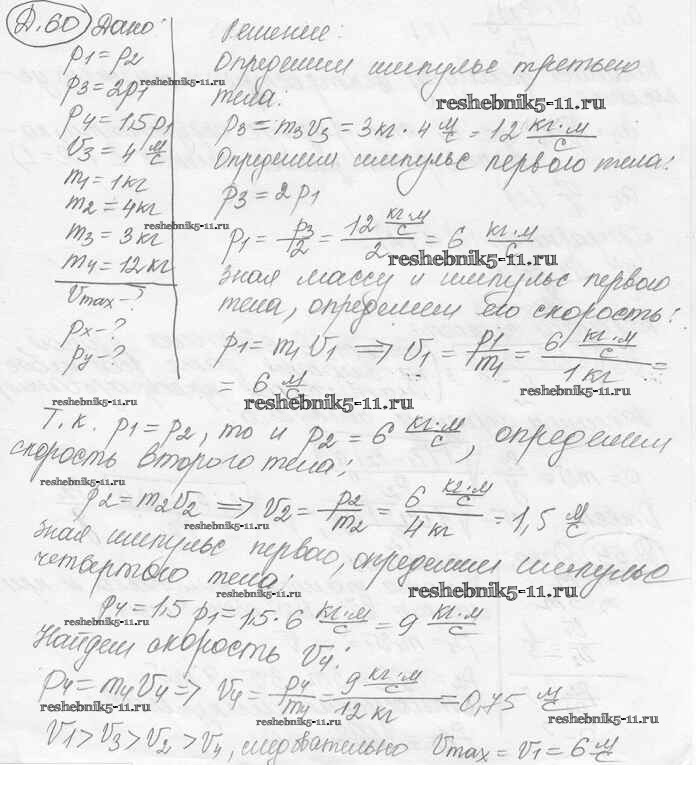 Д.60 Дано:
p1 = p2
p3 = 2p1
p4 = 1,5p1
v3 = 4 м/с
m1 = 1 кг
m2 = 4 кг
m3 = 3 кг
m4 = 12 кг
vmax - ?
px - ?
py - ?
reshebnik5-11.ru
reshebnik5-11.ru
reshebnik5-11.ru
Решение:
Определим импульс третьего
тела:
reshebnik5-11.ru
p3 = m3v3 = 3 кг · 4 м/с = 12 кг·м/с
Определим импульс первого тела:
p3 = 2p1
p1 = p3/2 = 12 кг·м/с / 2 = 6 кг·м/с
reshebnik5-11.ru
Зная массу и импульс первого
тела, определяем его скорость:
p1 = m1v1 ⟹ v1 = p1/m1 = 6 кг·м/с / 1 кг =
reshebnik5-11.ru
= 6 м/с
reshebnik5-11.ru
Т.к. p1 = p2, то и p2 = 6 кг·м/с, определяем
скорость второго тела:
reshebnik5-11.ru
p2 = m2v2 ⟹ v2 = p2/m2 = 6 кг·м/с / 4 кг = 1,5 м/с
reshebnik5-11.ru
Зная импульс первого, определим импульс
четвертого тела:
reshebnik5-11.ru
p4 = 1,5 p1 = 1,5 · 6 кг·м/с = 9 кг·м/с
reshebnik5-11.ru
Найдем скорость v4:
p4 = m4v4 ⟹ v4 = p4/m4 = 9 кг·м/с / 12 кг = 0,75 м/с
reshebnik5-11.ru
reshebnik5-11.ru
reshebnik5-11.ru
v1 > v3 > v2 > v4, следовательно vmax = v1 = 6 м/с